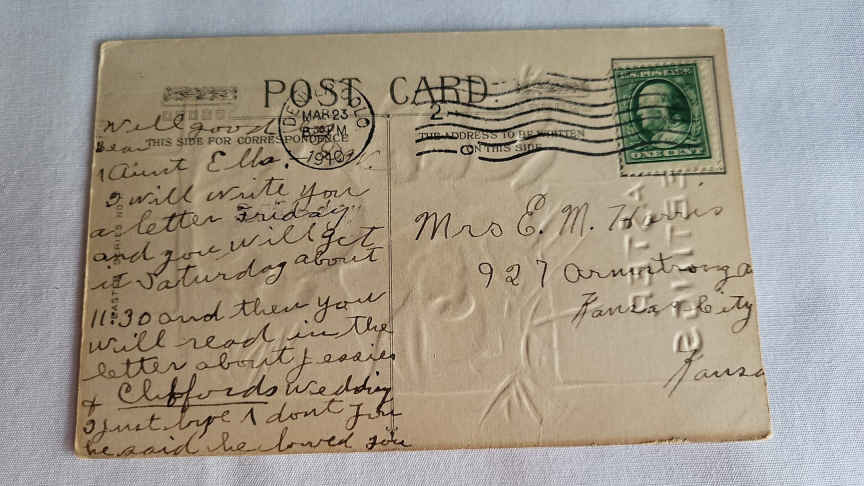 POST CARD
THIS SIDE FOR CORRESPONDENCE
THE ADDRESS TO BE WRITTEN
ON THIS SIDE
DENVER COLO
MAR 23
8 PM
1910
2
U.S. POSTAGE
ONE CENT
Well good
Dear
Aunt Ella.
I will write you
a letter Friday
and you will get
it Saturday about
11:30 and then you
will read in the
letter about Jessies
& Cliffords wedding
I just love dont you
he said he loved you
Mrs E. M. Harris
927 Armstrong a
Kansas City
Kansa
EASTER SERIES NO.